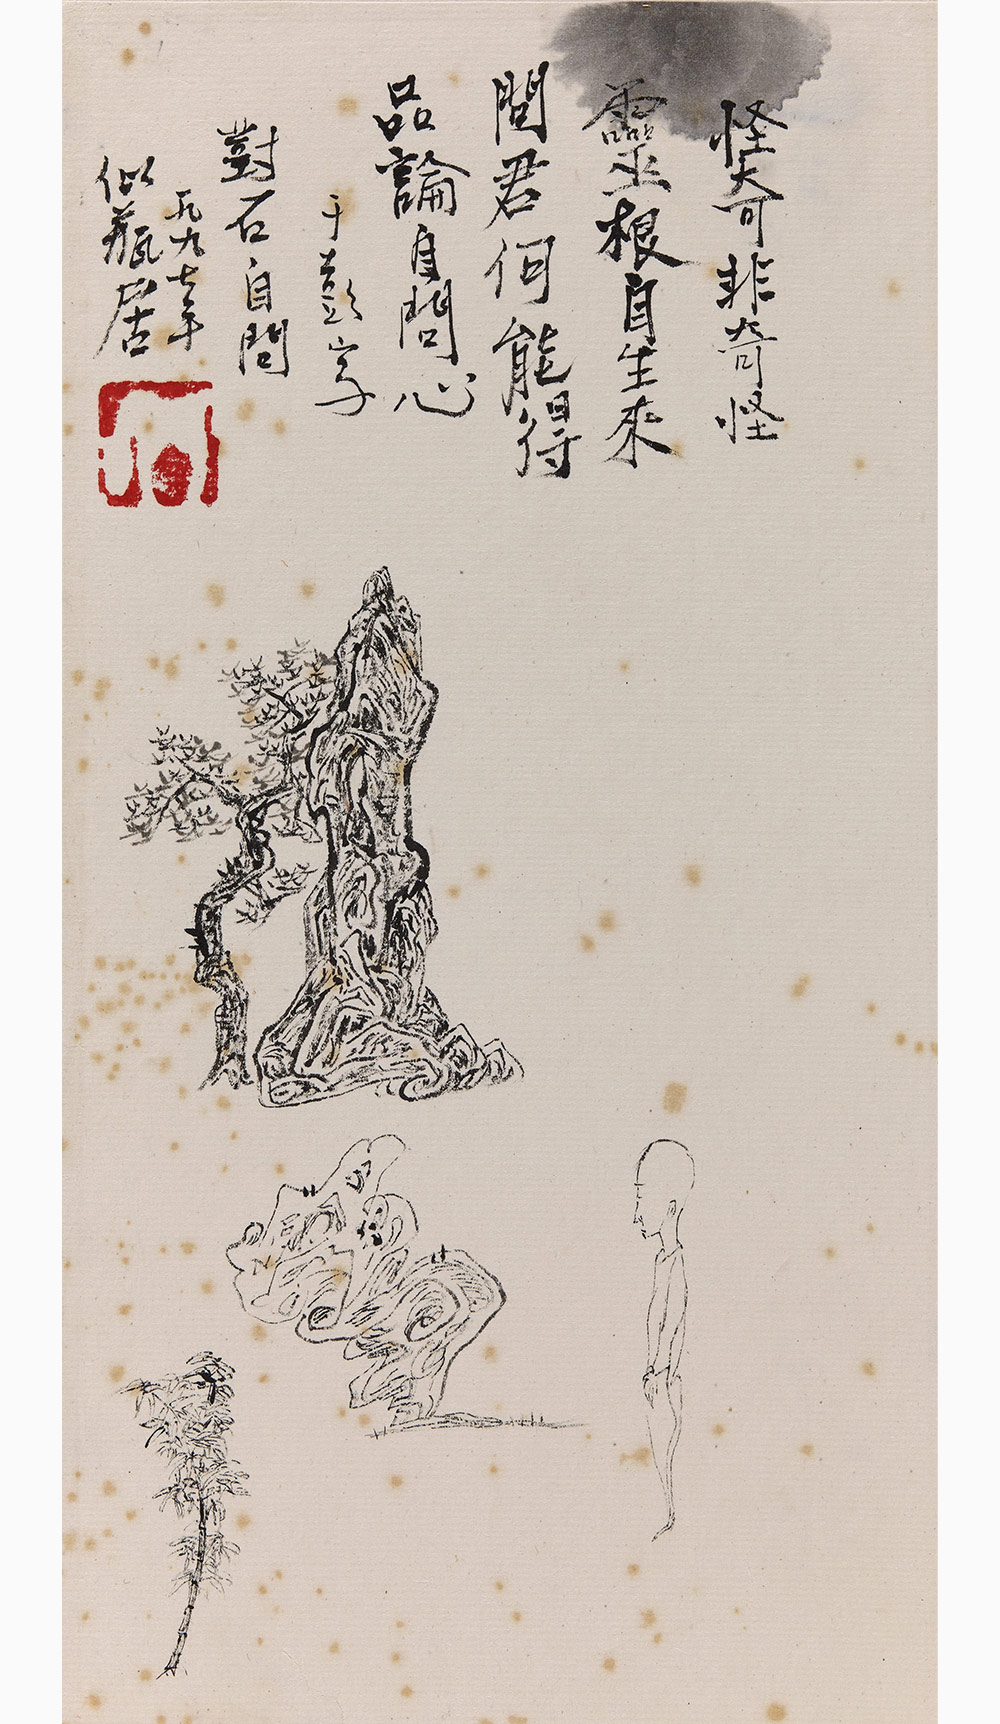 怪奇非奇怪
靈根自生來
問君何能得
品論自問心
于彭字
對石自問
一九九七年
似瓶居